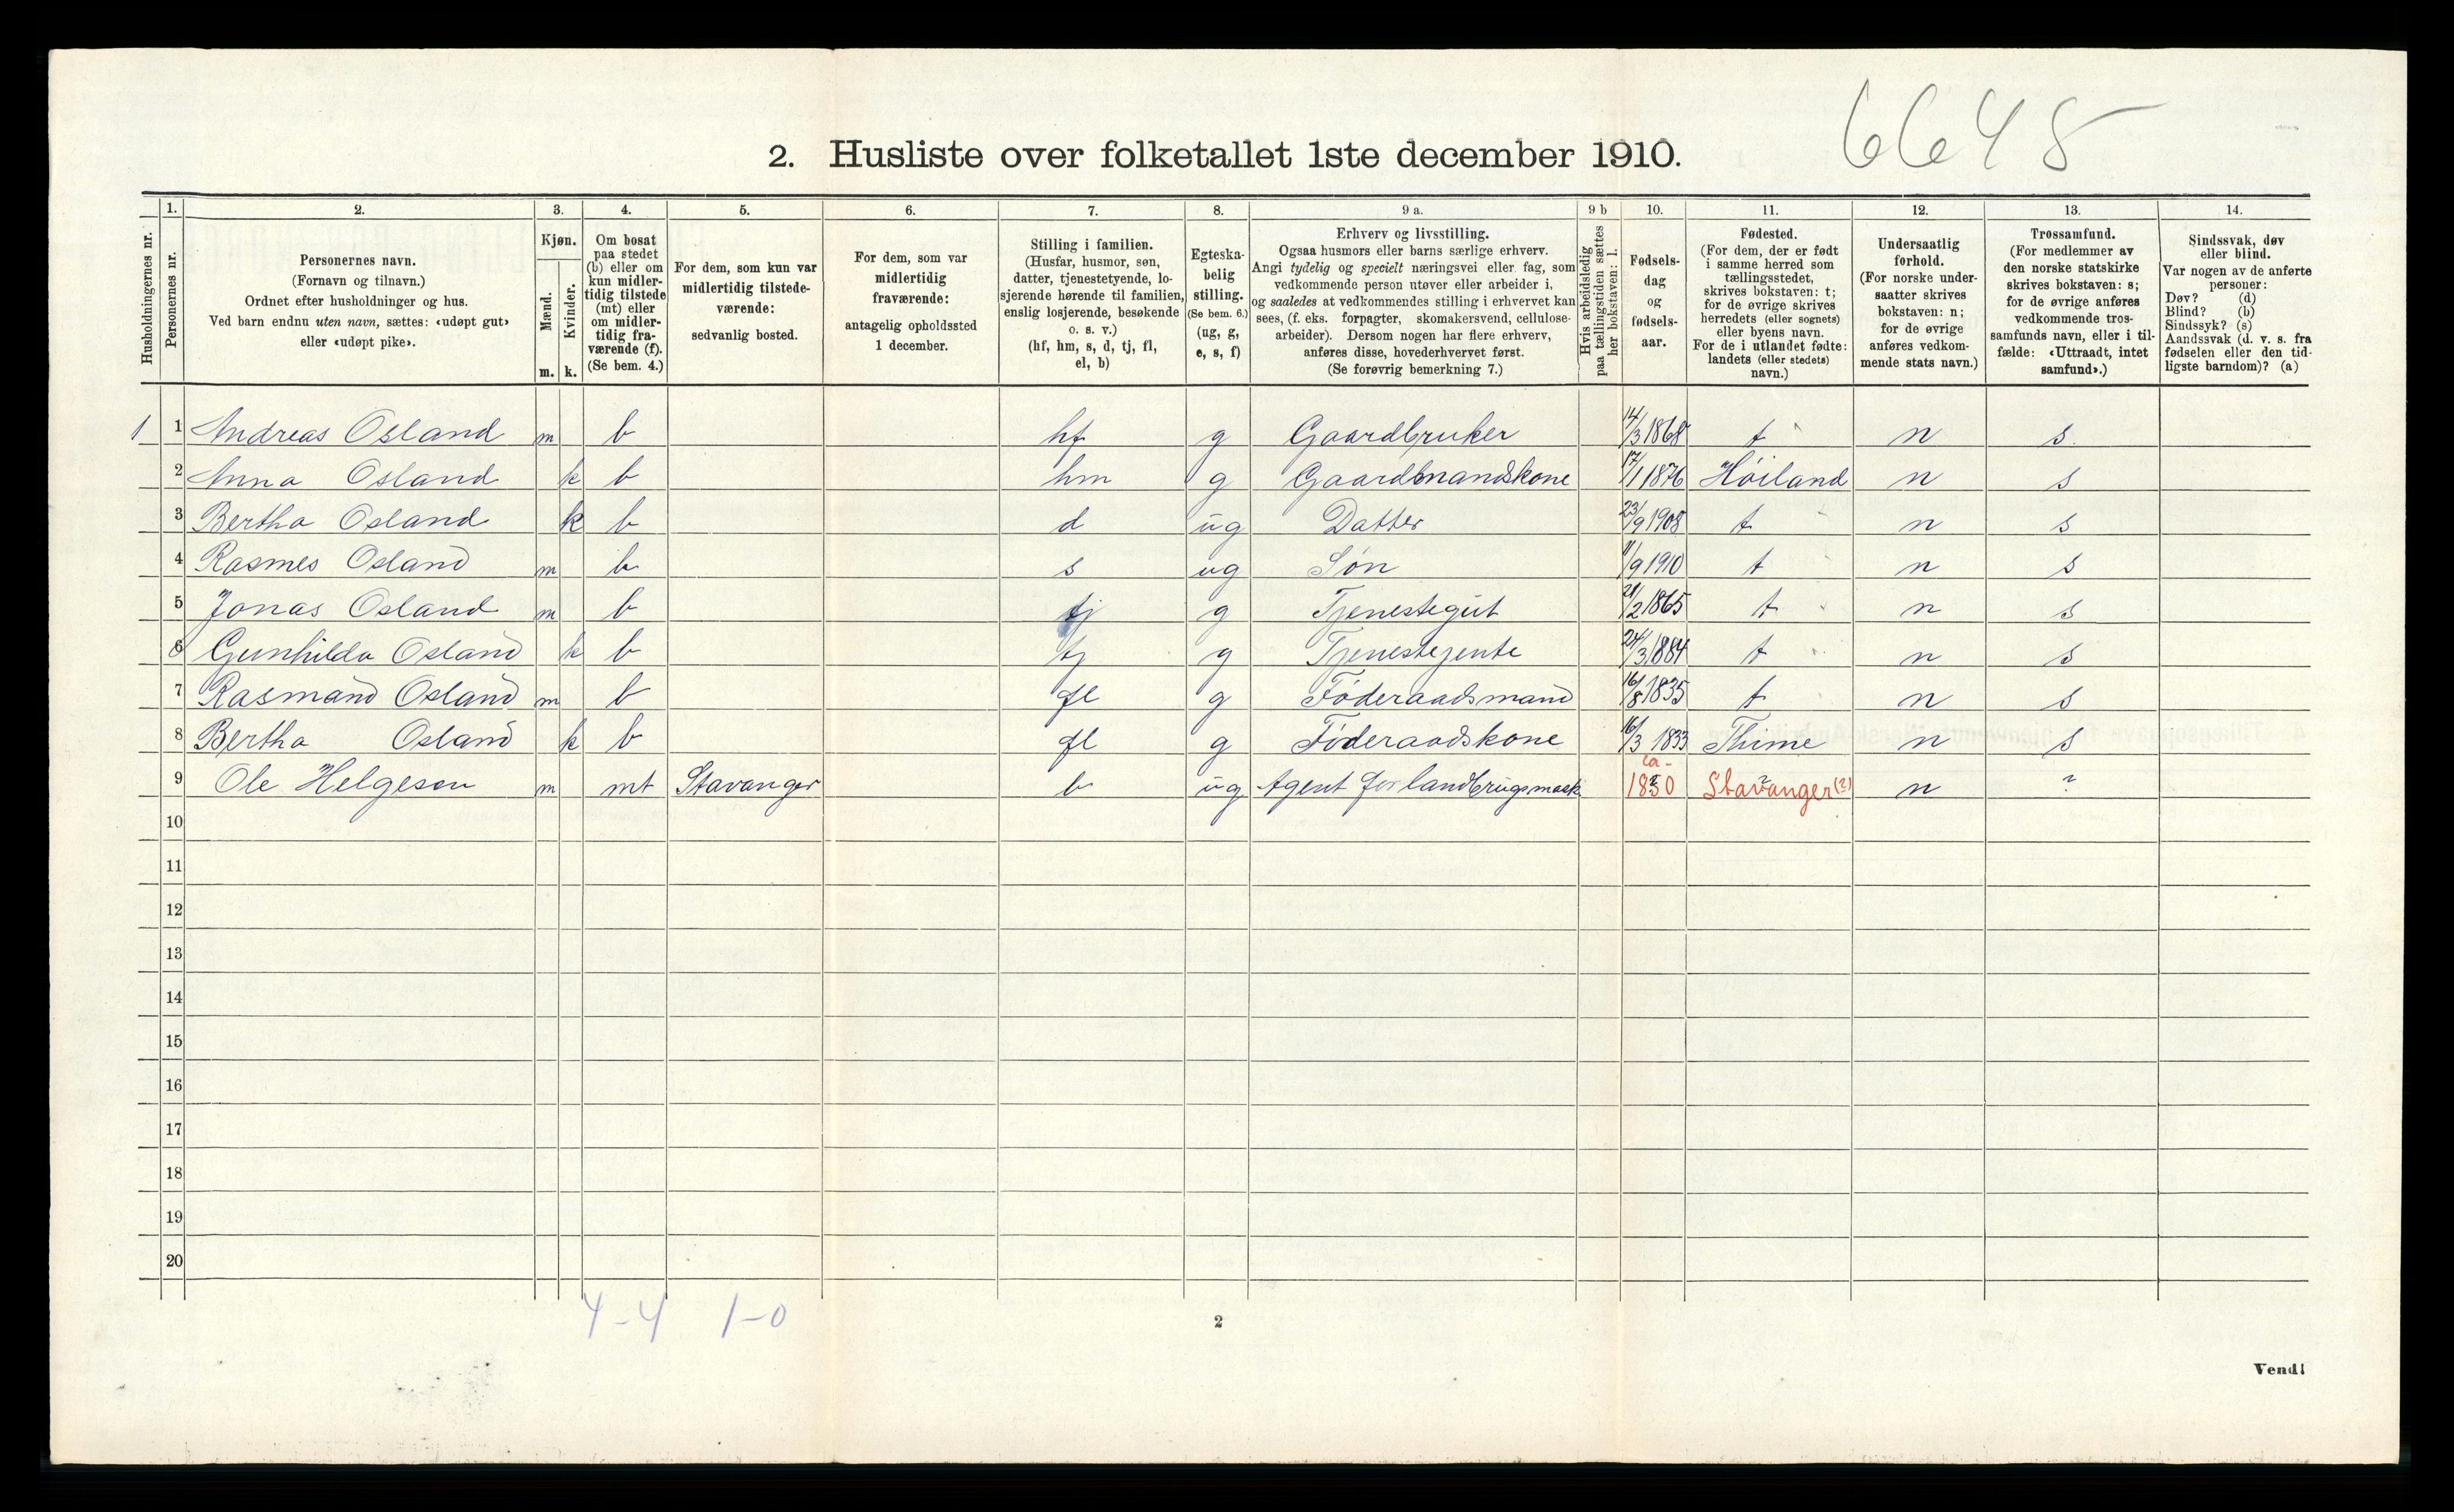 6648
2. Husliste over folketallet 1ste december 1910.
Husholdningernes nr.
1.
Personernes nr.
2.
Personernes navn.
(Fornavn og tilnavn.)
Ordnet efter husholdninger og hus.
Ved barn endnu uten navn, sættes: «udøpt gut»
eller «udøpt pike».
3.
Kjøn.
Mænd.
Kvinder.
m. k.
4.
Om bosat
paa stedet
(b) eller om
kun midler-
tidig tilstede
(mt) eller
om midler-
tidig fra-
værende (f).
(Se bem. 4.)
5.
For dem, som kun var
midlertidig tilstede-
værende:
sedvanlig bosted.
6.
For dem, som var
midlertidig
fraværende:
antagelig opholdssted
1 december.
7.
Stilling i familien.
(Husfar, husmor, søn,
datter, tjenestetyende, lo-
sjerende hørende til familien,
enslig losjerende, besøkende
o. s. v.)
(hf, hm, s, d, tj, fl,
el, b)
8.
Egteska-
belig
stilling.
(Se bem. 6.)
(ug, g,
e, s, f)
9 a.
Erhverv og livsstilling.
Ogsaa husmors eller barns særlige erhverv.
Angi tydelig og specielt næringsvei eller fag, som
vedkommende person utøver eller arbeider i,
og saaledes at vedkommendes stilling i erhvervet kan
sees, (f. eks. forpagter, skomakersvend, cellulose-
arbeider). Dersom nogen har flere erhverv,
anføres disse, hovederhvervet først.
(Se forøvrig bemerkning 7.)
9 b
Hvis arbeidsledig
paa tællingstiden sættes
her bokstaven: l.
10.
Fødsels-
dag
og
fødsels-
aar.
11.
Fødested.
(For dem, der er født
i samme herred som
tællingsstedet,
skrives bokstaven: t;
for de øvrige skrives
herredets (eller sognets)
eller byens navn.
For de i utlandet fødte:
landets (eller stedets)
navn.)
12.
Undersaatlig
forhold.
(For norske under-
saatter skrives
bokstaven: n;
for de øvrige
anføres vedkom-
mende stats navn.)
13.
Trossamfund.
(For medlemmer av
den norske statskirke
skrives bokstaven: s;
for de øvrige anføres
vedkommende tros-
samfunds navn, eller i til-
fælde: «Uttraadt, intet
samfund».)
14.
Sindssvak, døv
eller blind.
Var nogen av de anførte
personer:
Døv? (d)
Blind? (b)
Sindssyk? (s)
Aandssvak (d. v. s. fra
fødselen eller den tid-
ligste barndom)? (a)
1 1 Andreas Osland m b hf g Gaardbruker 14/3 1868 t n s
2 Anna Osland k b hm g Gaardmandskone 17/1 1876 Høiland n s
3 Bertha Osland k b d ug Datter 23/9 1908 t n s
4 Rasmes Osland m b s ug Søn 11/9 1910 t n s
5 Jonas Osland m b tj g Tjenestegut /2 1865 t n s
6 Gunhilda Osland k b tj g Tjenestejente 24/3 1884 t n s
7 Rasmand Osland m b fl g Føderaadsmand 16/8 1835 t n s
8 Bertha Osland k b fl g Føderaadskone 16/3 1833 Thime n s
9 Ole Helgesen m mt Stavanger b ug Agent for landbrugsmask ca- 1850 ? Stavanger (?) ? n ?
10
11
12
13
14
15
16
17
18
19
20
4-4 1-0
2
Vend!